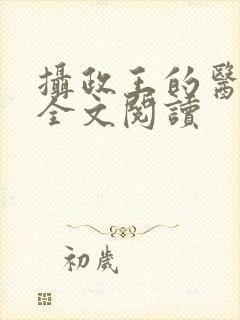 攝政王的醫
全文閱讀
初歲